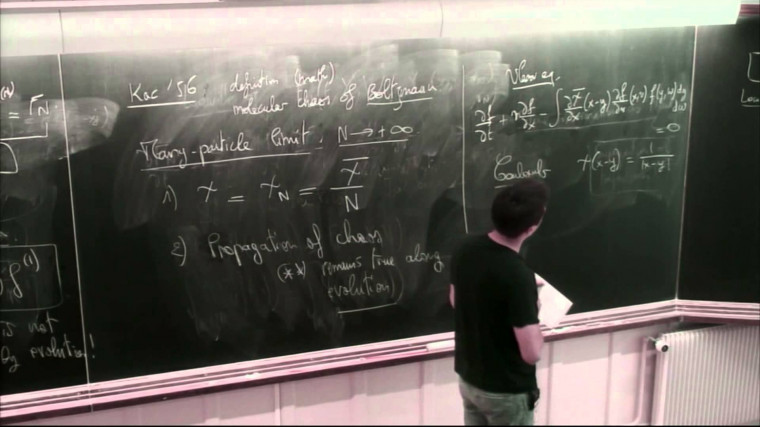 = F_N
f^(1)
is not
by evolution!
Kac '56 definition (math)
molecular chaos of Boltzmann
Many-particle limit: N → +∞
1) γ = γ_N = γ̅ / N
2) Propagation of chaos
(**) remains true along
evolution)
Vlasov eq.
∂f/∂t + v ∂f/∂x − ∫ ∂γ̅/∂x (x-y) ∂f/∂v (x,v) f(y,w) dy dw
= 0
Coulomb γ(x-y) = 1/|x-y|